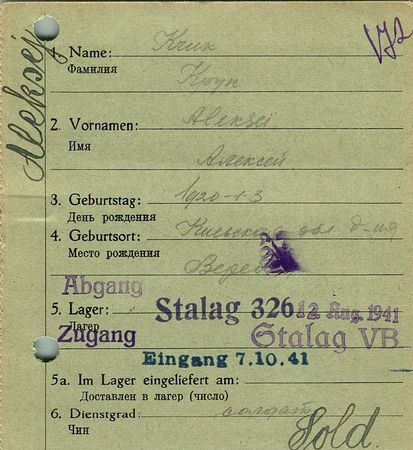 Aleksej
1. Name:
Фамилия
Крук
2. Vornamen: Aleksei
Имя
Алексей
3. Geburtstag: 1920-1-3
День рождения
4. Geburtsort: Киевская обл д-ня
Место рождения
Abgang
5. Lager: Stalag 326 12. Aug. 1941
Лагерь
Zugang Stalag VB
Eingang 7.10.41
5a. Im Lager eingeliefert am:
Доставлен в лагер (число)
6. Dienstgrad: солдат
Чин
Sold.